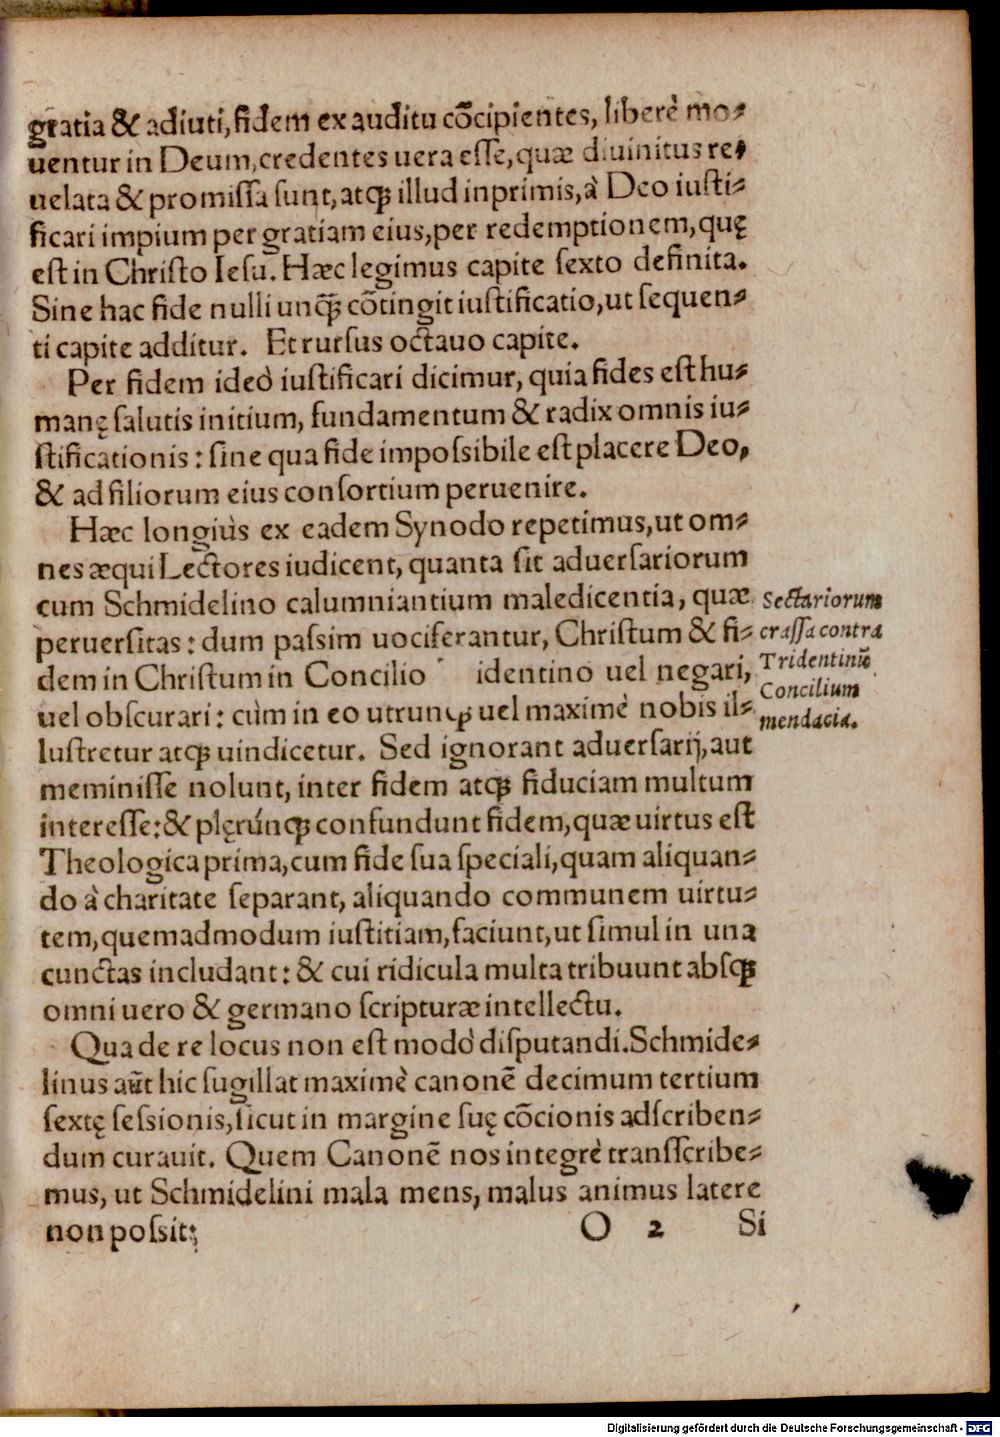 gratia & adiuti, fidem ex auditu cōcipientes, liberè mo-
uentur in Deum, credentes uera eſſe, quæ diuinitus re-
uelata & promiſſa ſunt, atq́ꝫ illud inprimis, à Deo iuſti-
ficari impium per gratiam eius, per redemptionem, quę
eſt in Chriſto Ieſu. Hæc legimus capite ſexto definita.
Sine hac fide nulli unq̃ꝫ cōtingit iuſtificatio, ut ſequen-
ti capite additur. Et rurſus octauo capite.
Per fidem ideò iuſtificari dicimur, quia fides eſt hu-
manę ſalutis initium, fundamentum & radix omnis iu-
ſtificationis: ſine qua fide impoſsibile eſt placere Deo,
& ad filiorum eius conſortium peruenire.
Hæc longiùs ex eadem Synodo repetimus, ut om-
nes æqui Lectores iudicent, quanta ſit aduerſariorum
cum Schmidelino calumniantium maledicentia, quæ
peruerſitas: dum paſsim uociferantur, Chriſtum & fi-
dem in Chriſtum in Concilio identino uel negari,
uel obſcurari: cùm in eo utrunqꝫ uel maximè nobis il-
luſtretur atqꝫ uindicetur. Sed ignorant aduerſarij, aut
meminiſſe nolunt, inter fidem atqꝫ fiduciam multum
intereſſe: & plęrúnqꝫ confundunt fidem, quæ uirtus eſt
Theologica prima, cum fide ſua ſpeciali, quam aliquan-
do à charitate ſeparant, aliquando communem uirtu-
tem, quemadmodum iuſtitiam, faciunt, ut ſimul in una
cunctas includant: & cui ridicula multa tribuunt abſqꝫ
omni uero & germano ſcripturæ intellectu.
Qua de re locus non eſt modò diſputandi. Schmide-
linus aūt hic ſugillat maximè canonē decimum tertium
ſextę ſeſsionis, ſicut in margine ſuę cōcionis adſcriben-
dum curauit. Quem Canonē nos integrè tranſſcribe-
mus, ut Schmidelini mala mens, malus animus latere
non poſsit:
O 2 Si
Sectariorum
craſſa contra
Tridentinū
Concilium
mendacia.
Digitalisierung gefördert durch die Deutsche Forschungsgemeinschaft - DFG